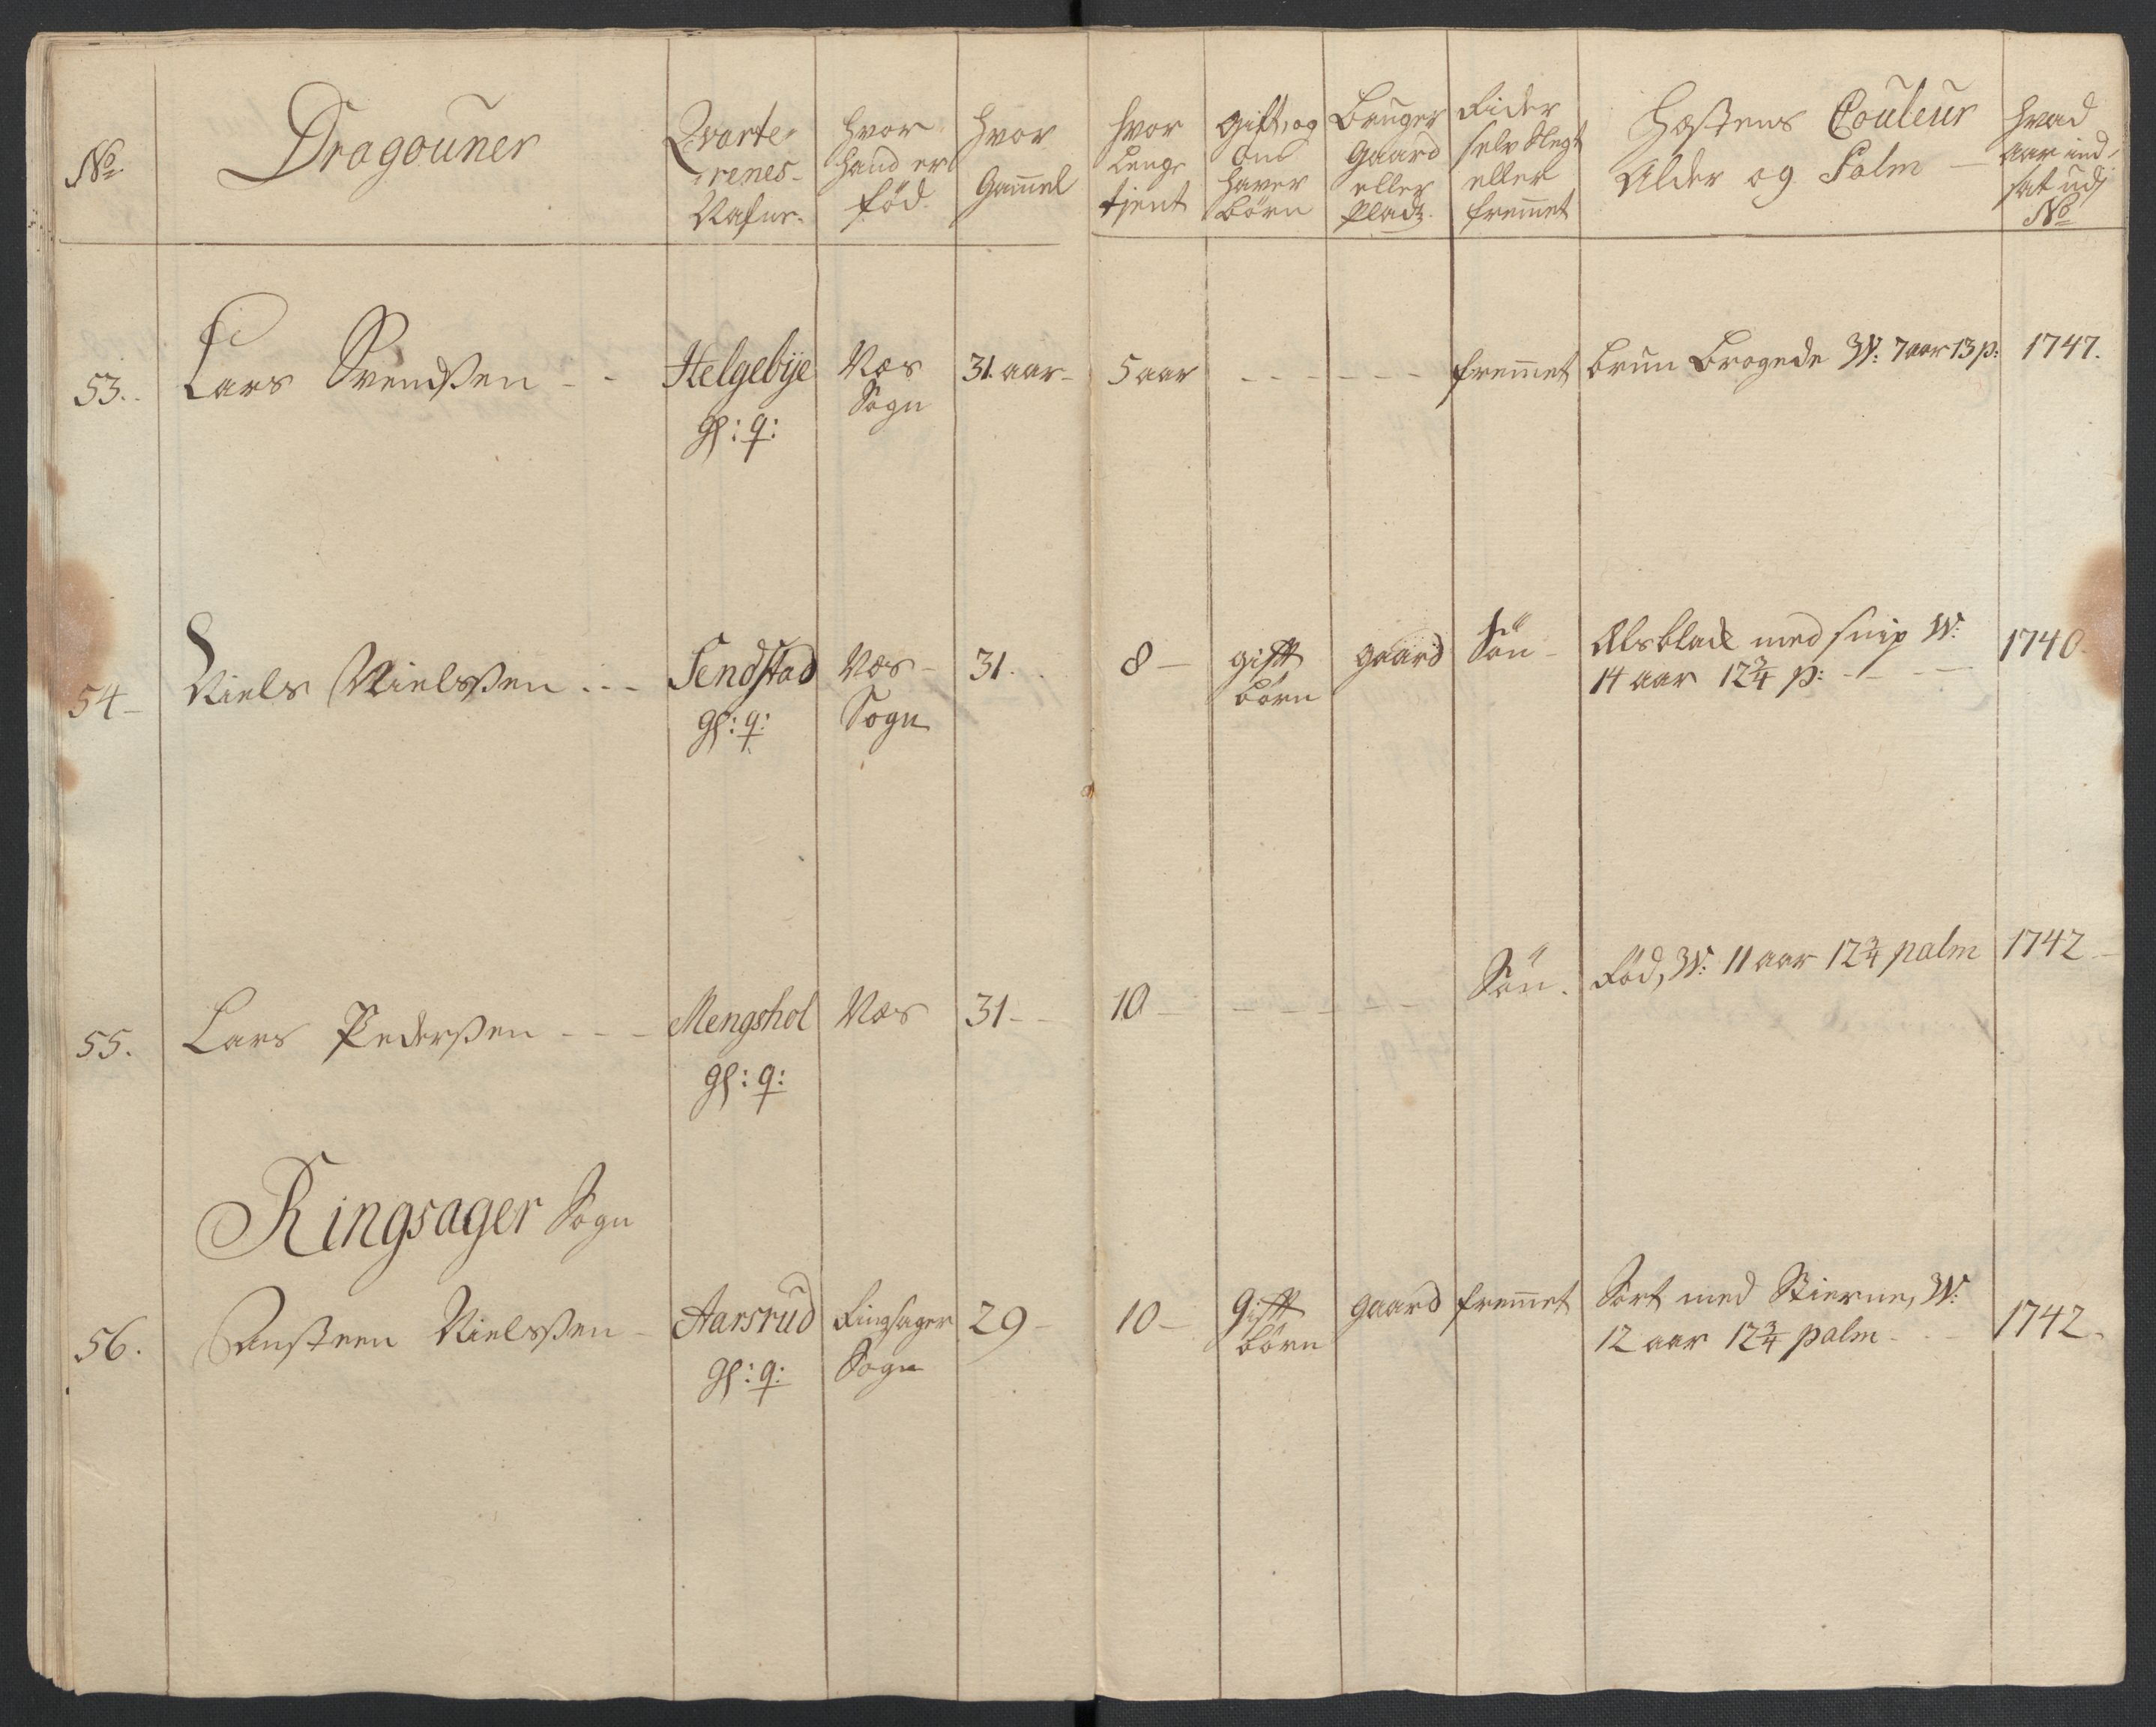 No.
Dragouner
Qvarte-
renes-
Nafne-
hvor
hand er
fød.
hvor
Gammel
hvor
Lenge
tjent
Gift, og
om
haver
børn
Bruger
Gaard
eller
Pladz.
Rider
selv slegt
eller
fremmet
Hæstens Couleur
Alder og Palm
hvad
aar ind-
sat udj
No
53.
Lars Svendsen
Helgebye
gl: q:
Næs
Sogn
31. aar
5 aar
fremmet
brun Brogede W: 7 aar 13 p:
1747.
54
Niels Nielsen
Sendstad
gl: q:
Næs
Sogn
31
8
gift
børn
gaard
Søn
Alsblack med snip W:
14 aar 12 3/4 p:
1740
55.
Lars Pedersen
Mengshol
gl: q:
Næs
31
10
Søn.
Rød, W: 11 aar 12 3/4 palm
1742
Ringsager Sogn
56.
Austeen Nielsen
Aarsrud
gl: q:
Ringsager
Sogn
29
10
Gift
børn
gaard
fremmet
Sort med Stierne, W:
12 aar 12 3/4 palm
1742.